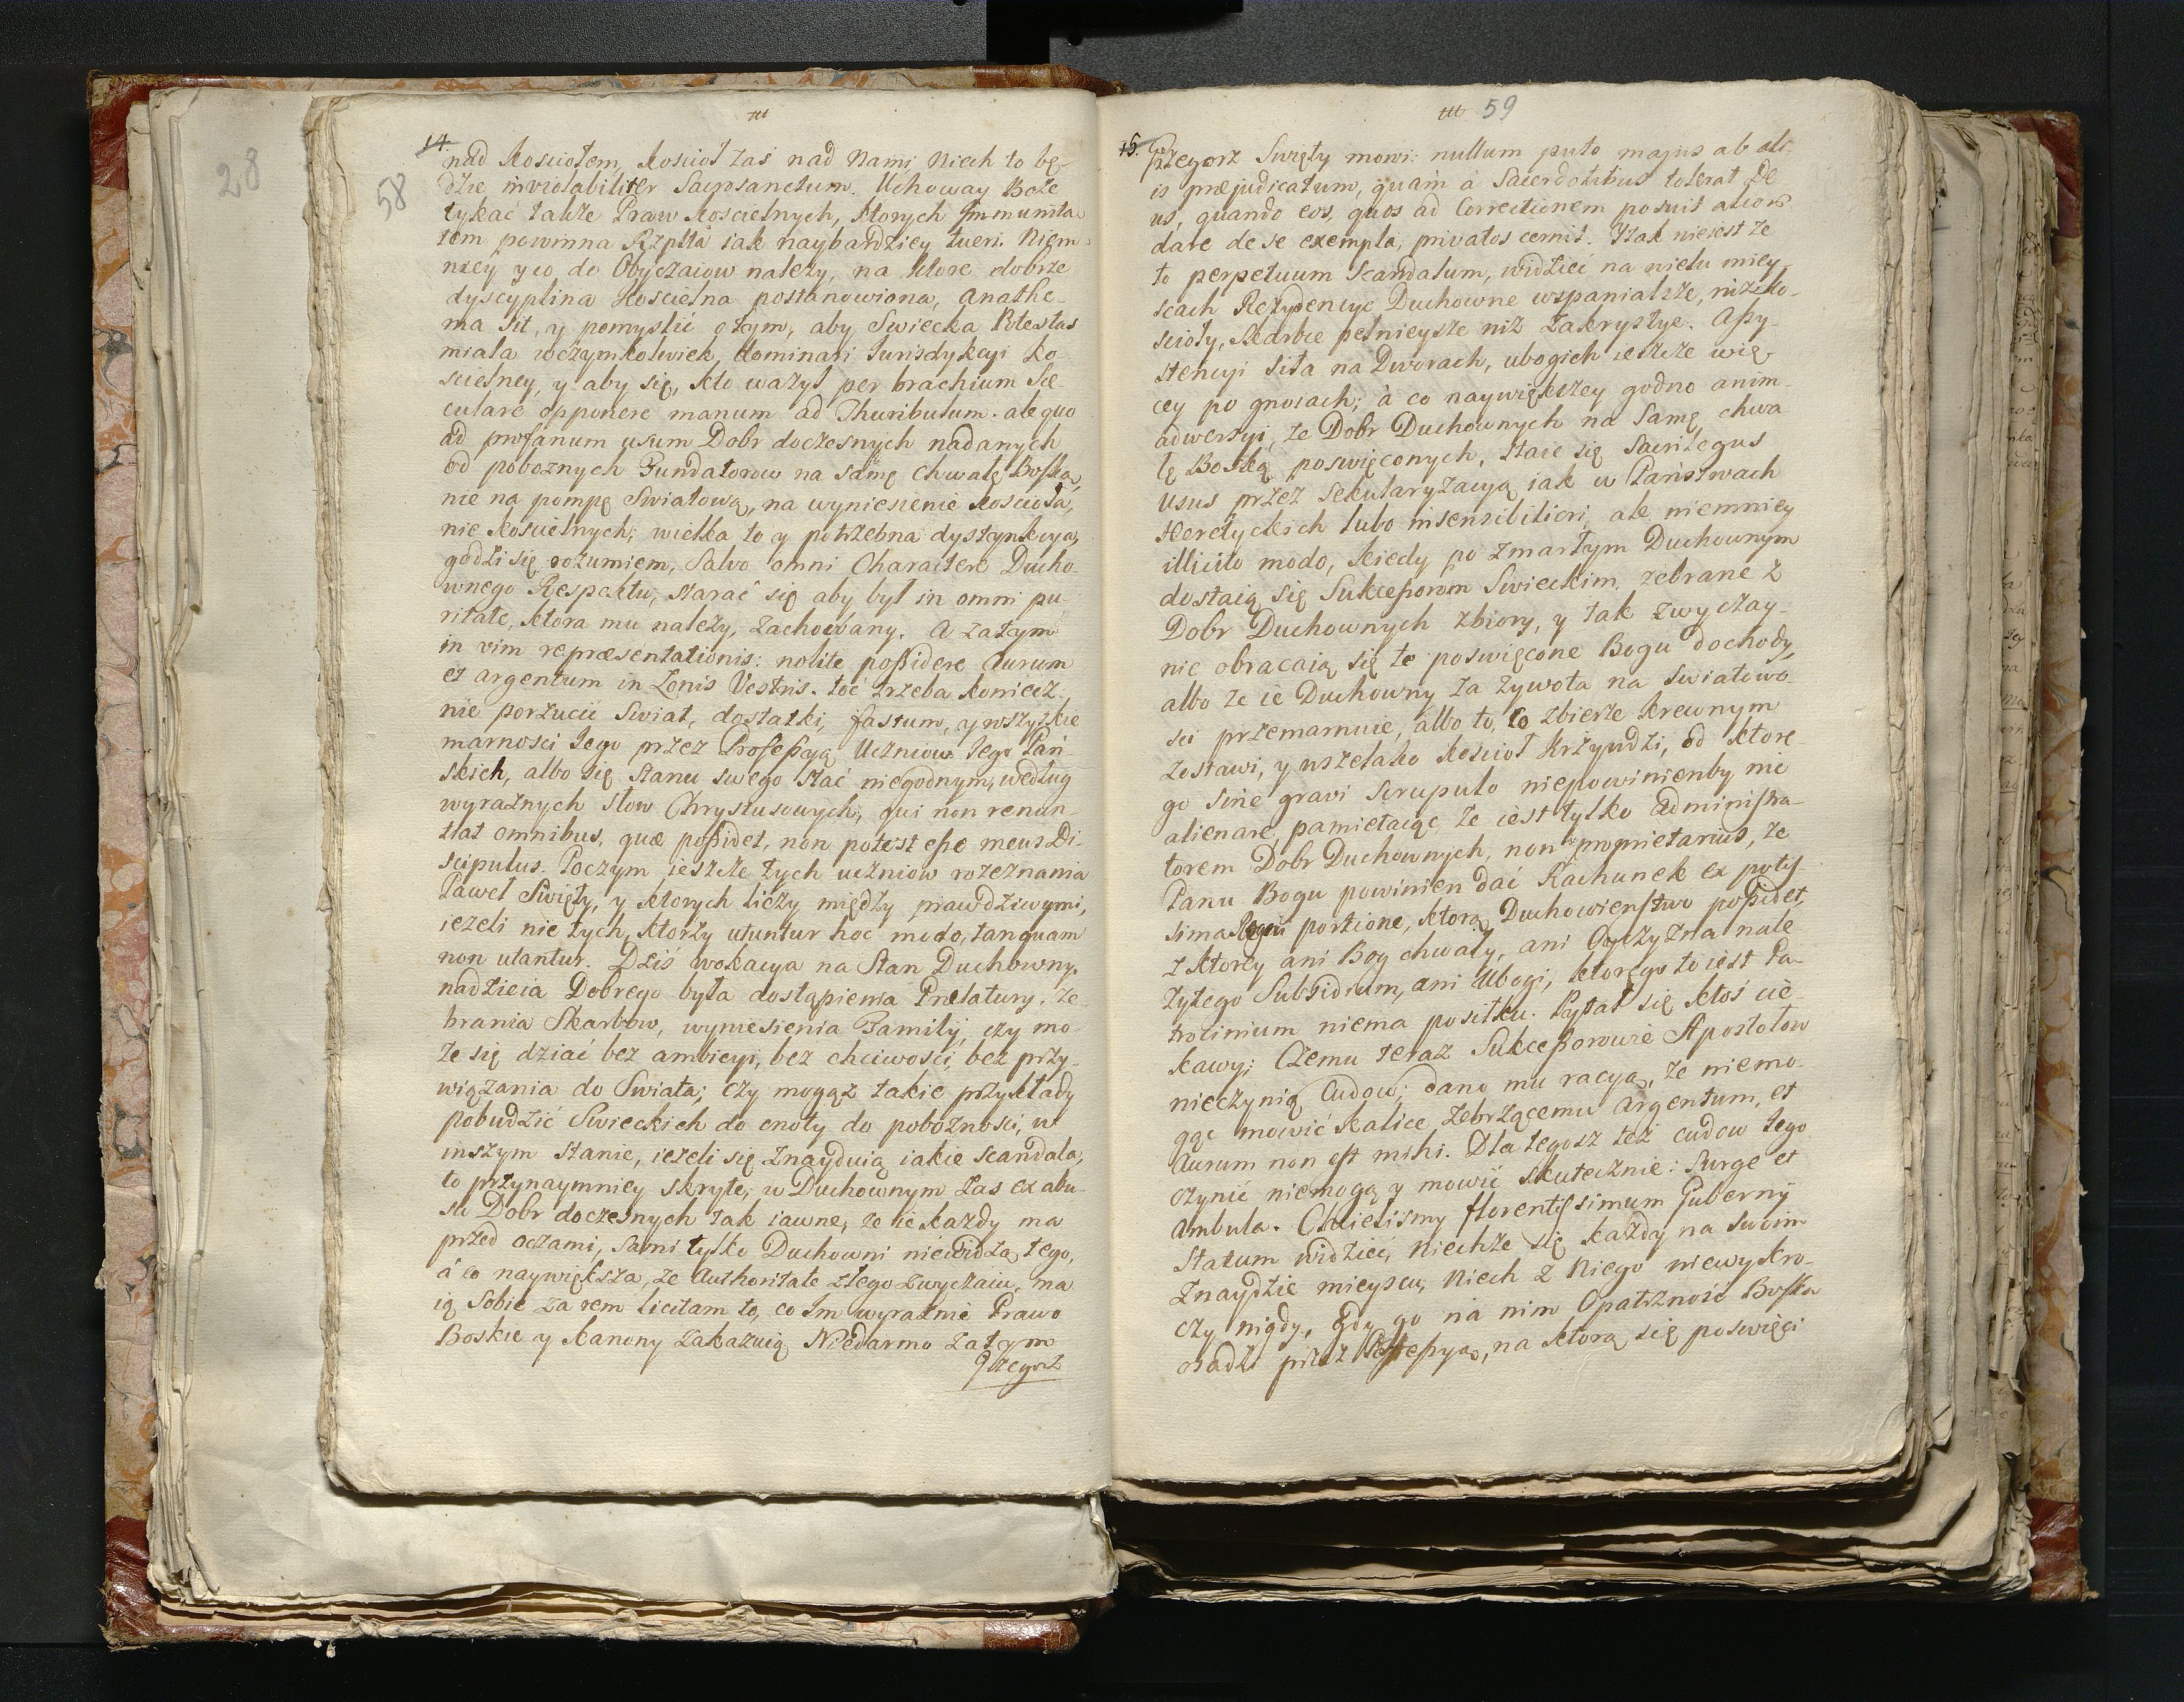 28
58
14.
nad Kosciołem, Koscioł zaś nad Nami, Niech to bę-
dzie inviolabiliter Sacrosanctum. Uchoway Boże
tykać także Praw Koscielnych, ktorych Immunita-
tem powinna Rzplta iak naybardziey tueri. Niem-
niey y co do Obyczaiow należy, na ktore dobrze
dyscyplina Koscielna postanowiona, Anathe-
ma sit, y pomyslić o tym, aby Swiecka Potestas
miała wczymkolwiek dominari Iurisdykcyi Ko-
scielney, y aby się, kto ważył per brachium Sæ-
culare opponere manum ad Thuribulum. ale quo
ad profanum usum Dobr doczesnych nadanych
od pobożnych Fundatorow na samę Chwałę Boską,
nie na pompę Swiatową, na wyniesienie Koscioła,
nie Koscielnych; wielka to y potrzebna dystynkcya,
godzi się rozumiem, Salvo omni Charactere Ducho-
wnego Respektu, starać się aby był in omni pu-
ritate, ktora mu należy, zachowany. A zatym
in vim repræsentationis: nolite poßidere Aurum
et argentum in Zonis Vestris. toć trzeba koniecz-
nie porzucić Swiat, dostatki, fastum, y wszystkie
marnosci Iego przez Profeßyą Uczniow Iego Pań-
skich, albo się Stanu swego stać niegodnym, według
wyraznych słow Chrystusowych; qui non renun-
tiat omnibus, quæ poßidet, non potest eße meus Di-
scipulus. Poczym ieszcze tych uczniow rozeznania
Paweł Swięty, y ktorych liczy między prawdziwymi,
ieżeli nie tych, ktorzy utuntur hoc modo, tanquam
non utantur. Dziś wokacya na Stan Duchowny.
nadzieia Dobrego była dostąpienia Prælatury. Ze-
brania Skarbow, wyniesienia Familij, czy mo-
że się dziać bez ambicyi, bez chciwosci, bez przy-
wiązania do Swiata; czy mogąż takie przykłady
pobudzić Swieckich do cnoty do pobożnosci, w
inszym Stanie, ieżeli się znayduią iakie scandala,
to przynaymniey skryte, w Duchownym zas ex abu-
su Dobr doczesnych tak iawne, że ie każdy ma
przed oczami, sami tylko Duchowni niewidzą tego,
á co naywiększa, że Authoritate złego zwyczaiu, ma
ią Sobie za rem licitam to, co Im wyraznie Prawo
Boskie y Kanony zakazuią Niedarmo zatym
Grzegorz
59
15.
Grzegorz Swięty mowi: nullum puto majus ab ali-
is præjudicatum, quàm à Sacerdotibus tolerat De
us, quando eos, quos ad Correctionem posuit alior
dare de se exempla, privatos cernit. Iżak nieiest że
to perpetuum Scandalum, widzieć na wielu miey-
scach Rezydencye Duchowne wspanialsze, niż ko-
scioły, Skarbce pełnieysze niż Zakrystye. Aßy-
stencyi siła na Dworach, ubogich ieszcze wię-
cey po gnoiach; à co naywiększey godno anim-
adwersyi, że Dobr Duchownych na Samę chwa
łę Boską poswięconych, staie się Sacrilegus
usus przez Sekularyzacyą iak w Państwach
Heretyckich lubo insensibiliori, ale niemniey
illicito modo, kiedy po zmarłym Duchownym
dostaią się Sukceßorom Swieckim zebrane z
Dobr Duchownych zbiory, y tak zwyczay-
nie obracaią się te poswięcone Bogu dochody,
albo że ie Duchowny za żywota na swiatowo-
sci przemarnuie, albo to, co zbierze krewnym
zostawi, y wszelako Koscioł Krzywdzi, od ktore-
go sine gravi scrupulo niepowinienby nic
alienare, pamietaiąc że iest tylko Administra-
torem Dobr Duchownych, non proprietarius, że
Panu Bogu powinien dać Rachunek ex potis-
sima Regni portione, ktorą Duchowienstwo poßidet,
z ktorey ani Bog chwały, ani Oyczyzna nale
żytego Subsidium, ani Ubogi, ktorego to iest Pa-
trimonium niema posiłku. Pytał się ktoś cie-
kawy; Czemu teraz Sukceßorowie Apostołow
nieczynią Cudow; dano mu racyą, że niemo-
gąc mowić Kalice żebrzącemu Argentum, et
Aurum non est mihi. Dla tegosz też cudow tego
czynić niemogą y mowić skutecznie: Surge et
Ambula. Chcielismy florentissimum Gubernij
Statum widzieć, Niechże się każdy na swoim
znaydzie mieyscu, Niech z Niego niewykro-
czy nigdy, gdy go na nim Opatrzność Boska
osadzi przez Profeßyą, na ktorą się poswięci